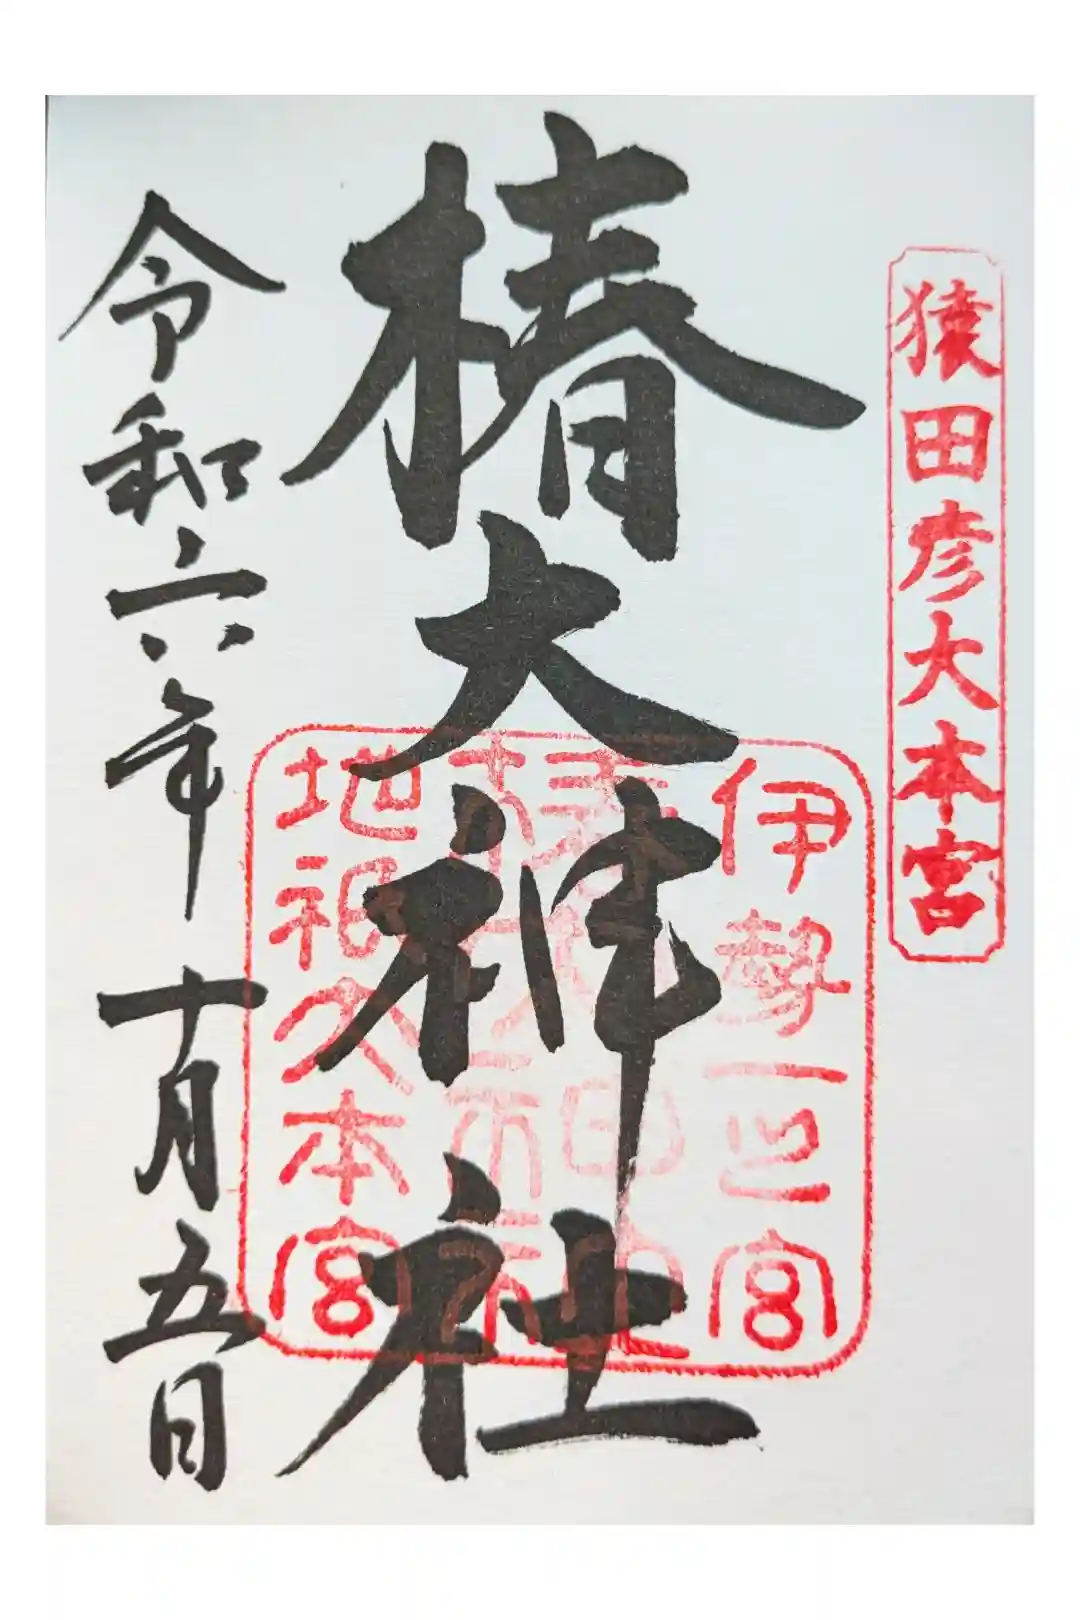 猿田彦大本宮
伊勢一之宮
椿大神社
地祇大本宮
椿大神社
令和六年十月五日